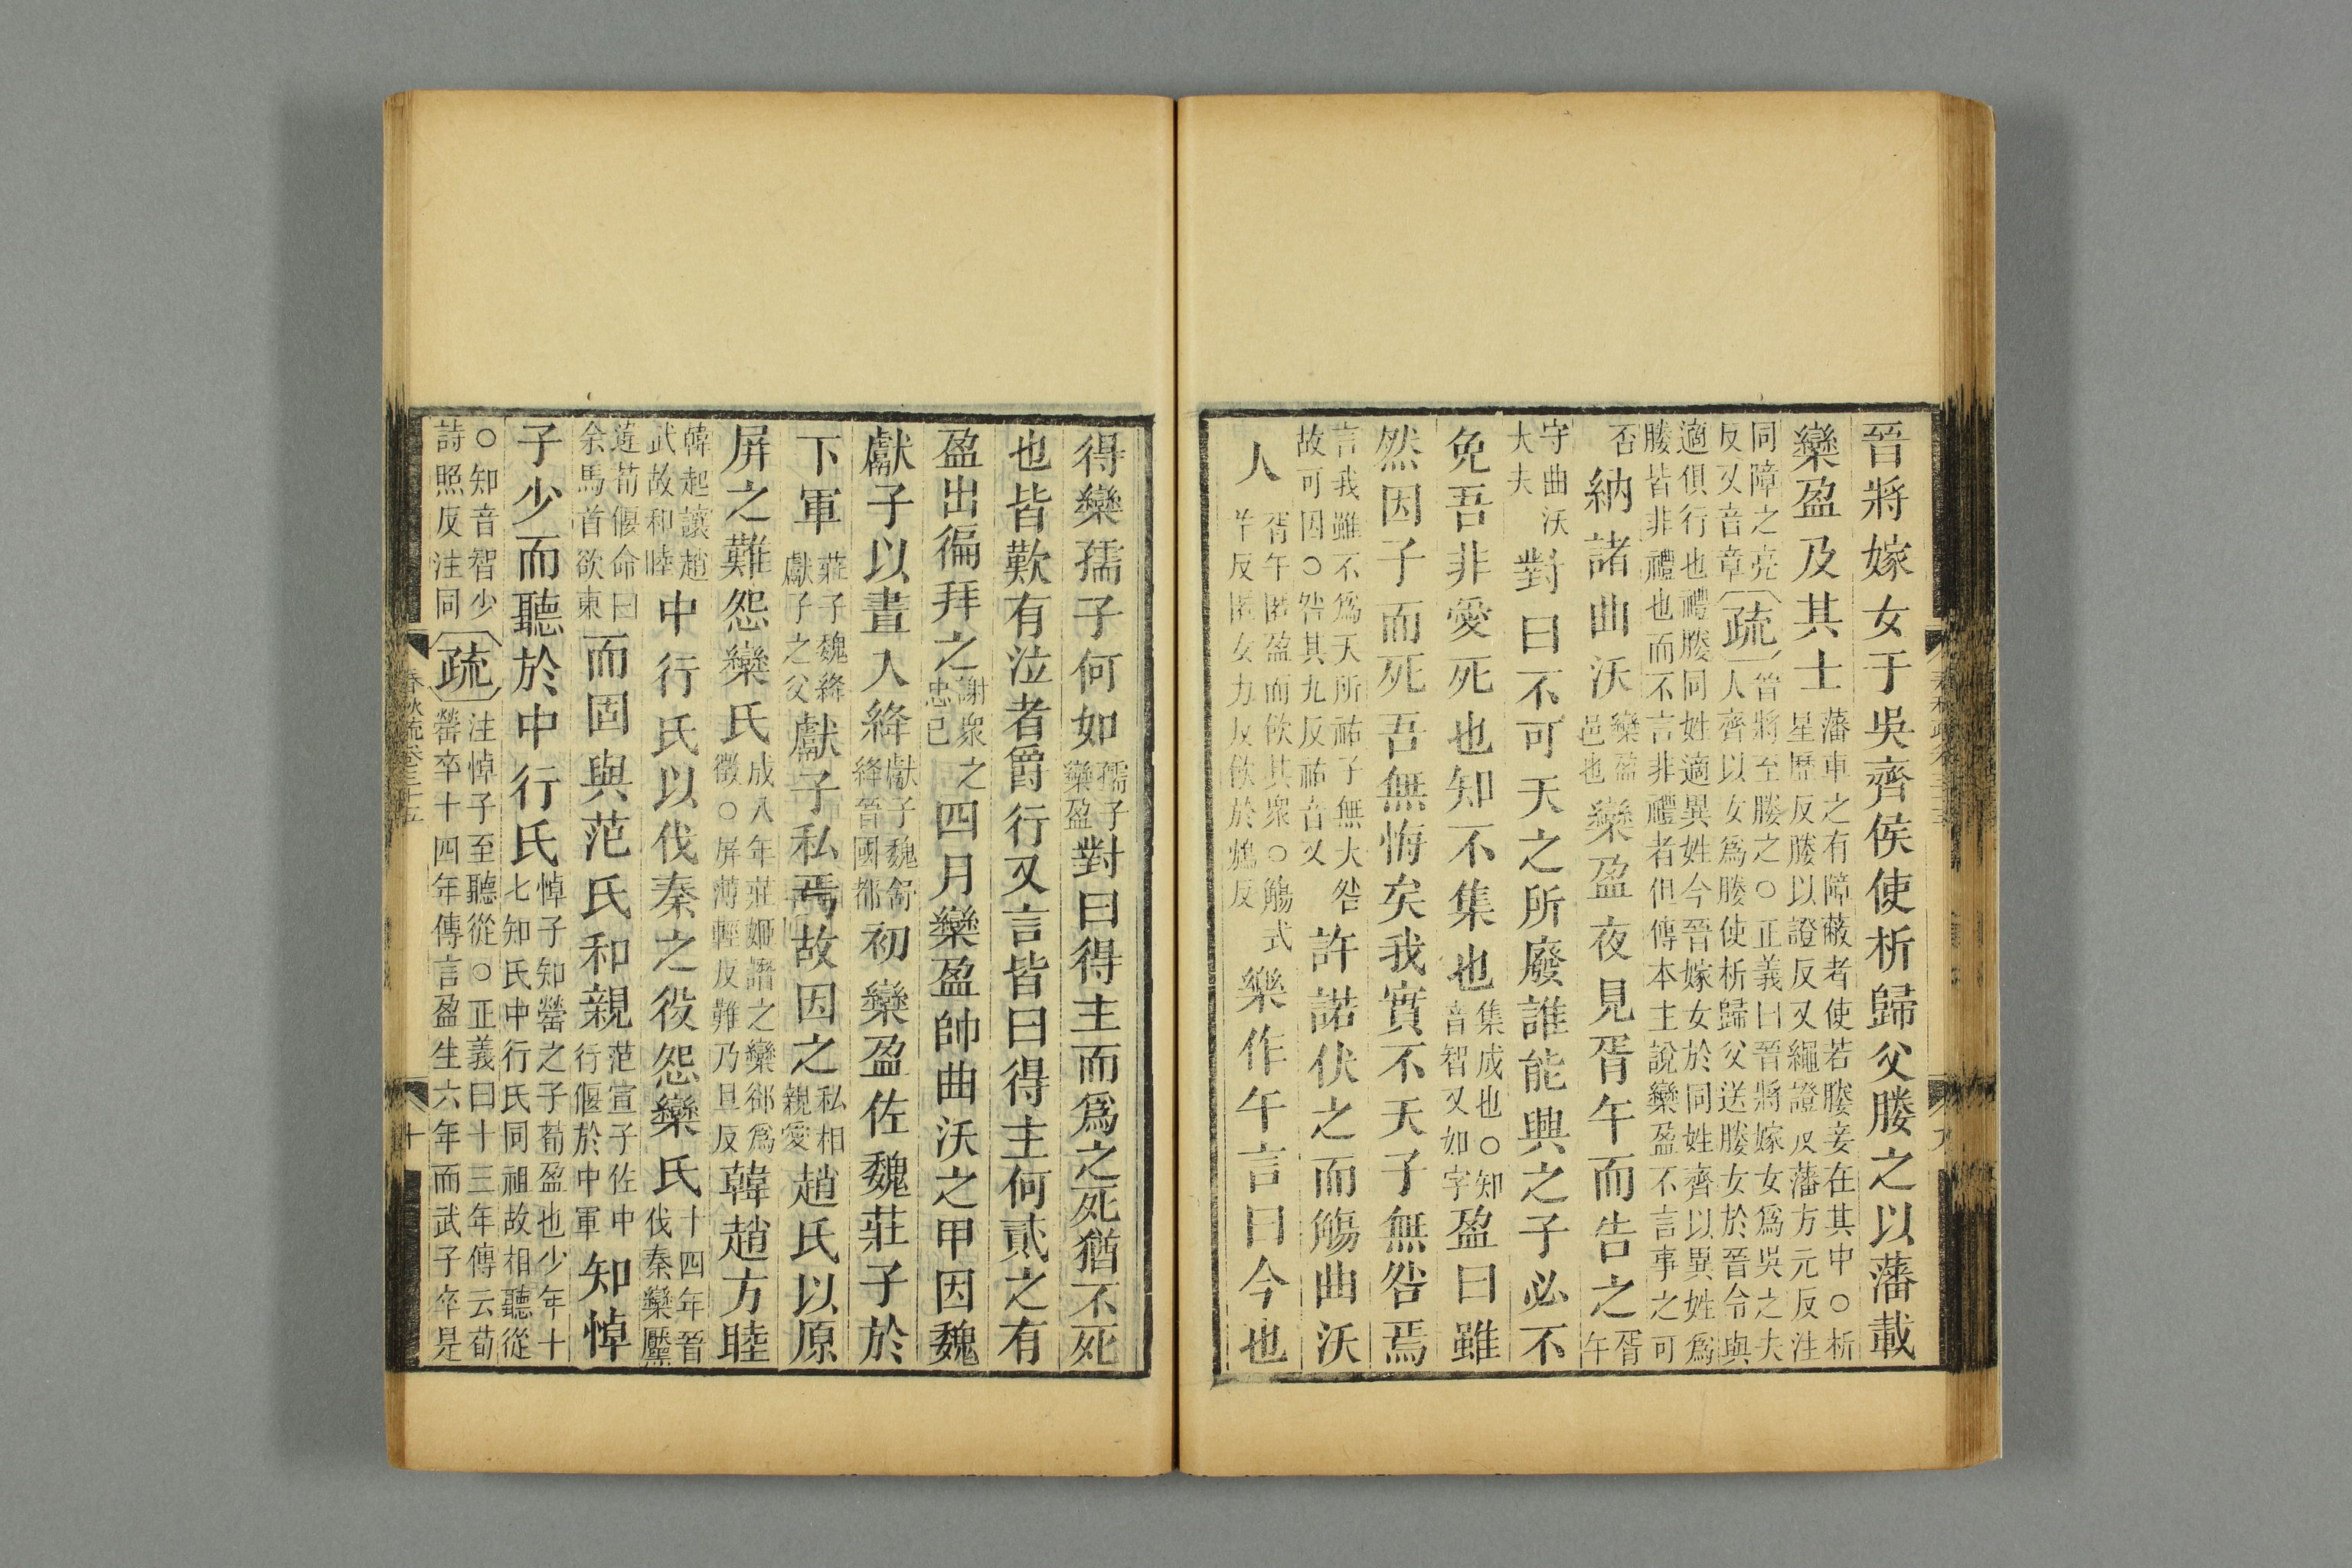 晉將嫁女于吳齊侯使析歸父媵之以藩載
欒盈及其士藩車之有障蔽者使若媵妾在其中○析星歷反媵以證反又繩證反藩方元反注
同障之亮反又音章疏晉將至媵之○正義曰晉將嫁女爲吳之夫人齊以女爲媵使析歸父送媵女於晉令與
適俱行也禮媵同姓適異姓今晉嫁女於同姓齊以異姓爲媵皆非禮也而不言非禮者但傳本主說欒盈不言事之可
否納諸曲沃欒盈邑也欒盈夜見胥午而告之胥午
守曲沃大夫對曰不可天之所廢誰能興之子必不
免吾非愛死也知不集也集成也○知音智又如字盈曰雖
然因子而死吾無悔矣我實不天子無咎焉
言我雖不爲天所祐子無大咎故可因○咎其九反祐音又許諾伏之而觴曲沃
人胥午匿盈而飲其衆○觴式羊反匿女力反飲於鴆反樂作午言曰今也
得欒孺子何如孺子欒盈對曰得主而爲之死猶不死
也皆歎有泣者爵行又言皆曰得主何貳之有
盈出徧拜之謝衆之思己四月欒盈帥曲沃之甲因魏
獻子以晝入絳獻子魏舒絳晉國都初欒盈佐魏莊子於
下軍莊子魏絳獻子之父獻子私焉故因之私相親愛趙氏以原
屏之難怨欒氏成八年莊姬譖之欒郤爲徵○屏薄輕反難乃旦反韓趙方睦
韓起讓趙武故和睦中行氏以伐秦之役怨欒氏十四年晉伐秦欒黶
違荀偃命曰余馬首欲東而固與范氏和親范宣子佐中行偃於中軍知悼
子少而聽於中行氏悼子知罃之子荀盈也少年十七知氏中行氏同祖故相聽從
○知音智少詩照反注同疏注悼子至聽從○正義曰十三年傳云荀罃卒十四年傳言盈生六年而武子卒是
春秋疏卷三十五
十